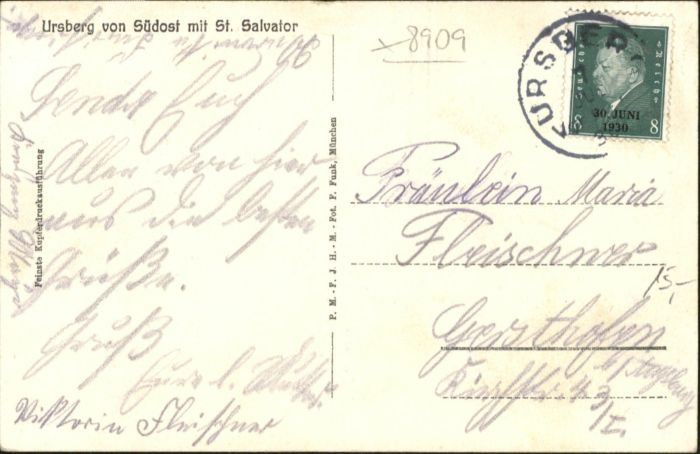 Ursberg von Südost mit St. Salvator
Sende Euch
Allen von hier
aus die besten
Grüße.
Gruß
Eure l.
Viktorin Fleischner
Feinste Kupferdruckausführung
P. M. - F. J. H. - M. - Fot. F. Funk, München
8909
URSBERG
Deutsches Reich
30. JUNI
1930
8 8
Fräulein Maria
Fleischner
Gersthofen
b/ Augsburg
15,-